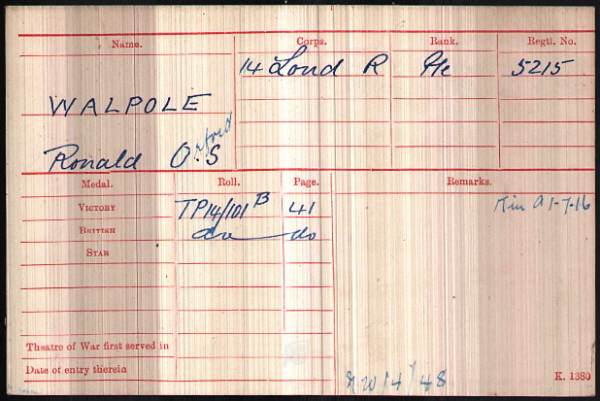 Name. Corps. Rank. Regtl. No.
14 Lond R Pte 5215
WALPOLE
Oxford
Ronald O. S
Medal. Roll. Page. Remarks.
VICTORY TP14/101 B 41 K in A 1-7-16
BRITISH do do
STAR
Theatre of War first served in
Date of entry therein
NW/4/48 K. 1380